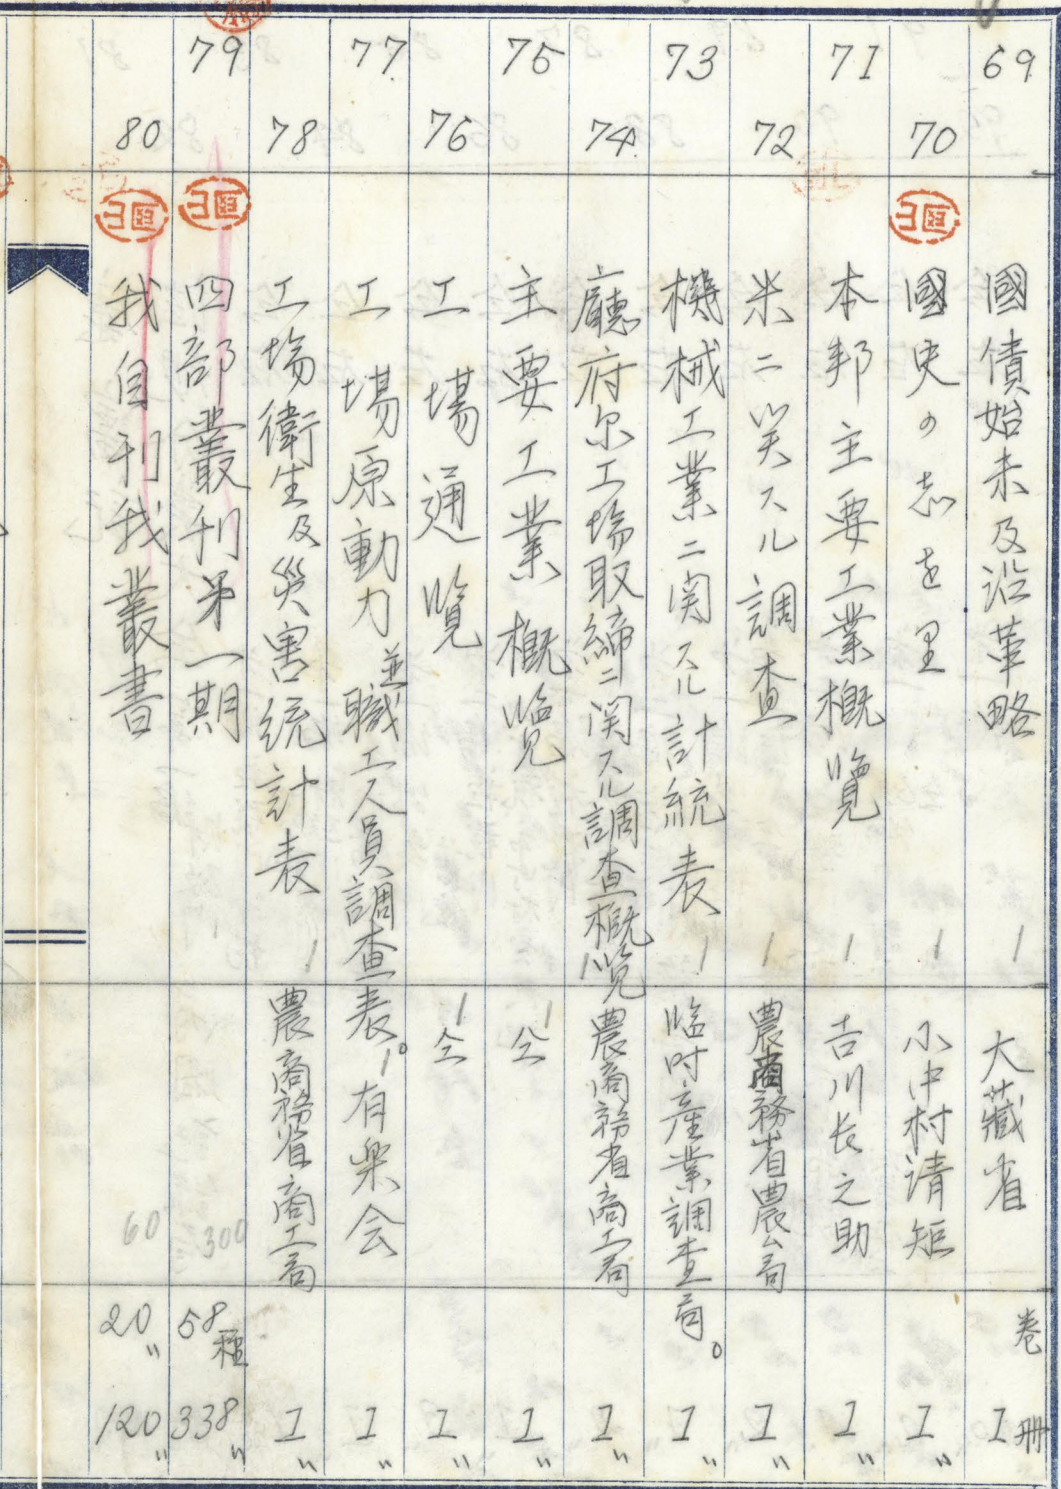 69 國債始末及沿革略 1 大藏省 卷 1冊
70 國史の志を里 1 小中村清矩 1〃
71 本邦主要工業概覽 1 吉川長之助 1〃
72 米ニ関スル調查 1 農商務省農ム局 1〃
73 機械工業ニ関スル計統表 1 臨时產業調查局。 1〃
74 廳府尔工場取締ニ関スル調查概覽 1 農商務省商工局 1〃
75 主要工業概览 1 仝 1〃
76 工場通覽 1 仝 1〃
77. 工場原動力並職工人員調查表。 1 有楽会 1〃
78 工場衛生及災害統計表 1 農商務省商工局 1〃
79 四部叢刊第一期 300 58種 338〃
80 我自刊我叢書 60 20〃 120〃